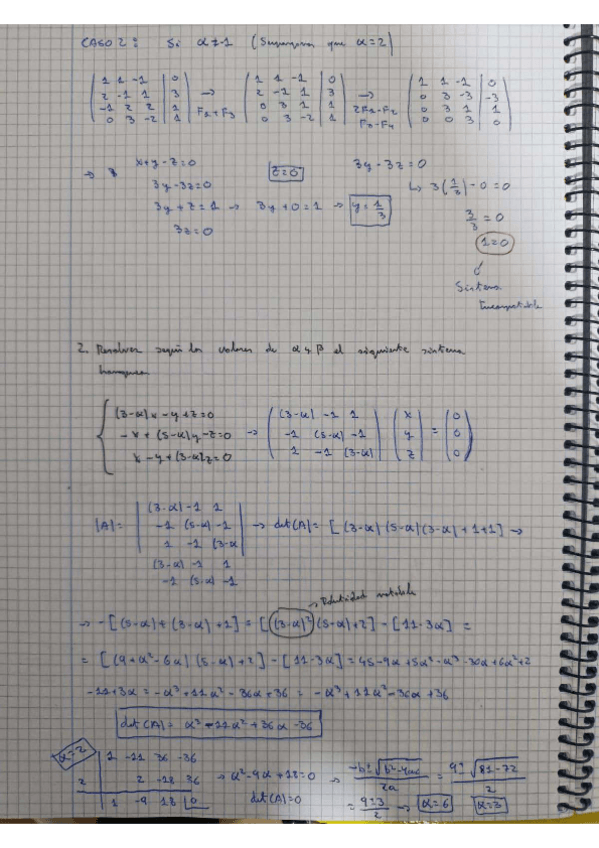 CASO 2: Si α≠-1 (Supongamos que α=2)
1 1 -1 | 0
2 -1 1 | 3
-1 2 2 | 1
0 3 -2 | 1
→
F1+F3
1 1 -1 | 0
2 -1 1 | 3
0 3 1 | 1
0 3 -2 | 1
→
2F1-F2
F3-F4
1 1 -1 | 0
0 3 -3 | -3
0 3 1 | 1
0 0 3 | 0
→ x+y-z=0
3y-3z=0
3y+z=1 → 3y+0=1 → y=1/3
3z=0
z=0
3y-3z=0
↳ 3(1/3)-0=0
3/3=0
1=0
Sistema
Incompatible
2. Resolver según los valores de α y β el siguiente sistema
homogeneo
(3-α)x-y+z=0
-x+(5-α)y-z=0
x-y+(3-α)z=0
→
(3-α) -1 1
-1 (5-α) -1
1 -1 (3-α)
x
y
z
=
0
0
0
|A|=
(3-α) -1 1
-1 (5-α) -1
1 -1 (3-α
(3-α) -1 1
-1 (5-α) -1
→ det(A)= [(3-α)(5-α)(3-α)+1+1] →
→ Identidad notable
→ -[(5-α)+(3-α)+(3-α)] = [(3-α)²(5-α)+2] - [11-3α] =
= [(9+α²-6α)(5-α)+2] - [11-3α] = 45-9α+5α²-α³-30α+6α²+2
-11+3α = -α³+11α²-36α+36 = -α³+11α²-36α+36
det(A)= α³-11α²+36α-36
α=2
1 -11 36 -36
2 2 -18 36
1 -9 18 0
→ α²-9α+18=0 → -b±√b²-4ac / 2a = 9±√81-72 / 2
det(A)=0
= 9±3 / 2 → α=6 α=3